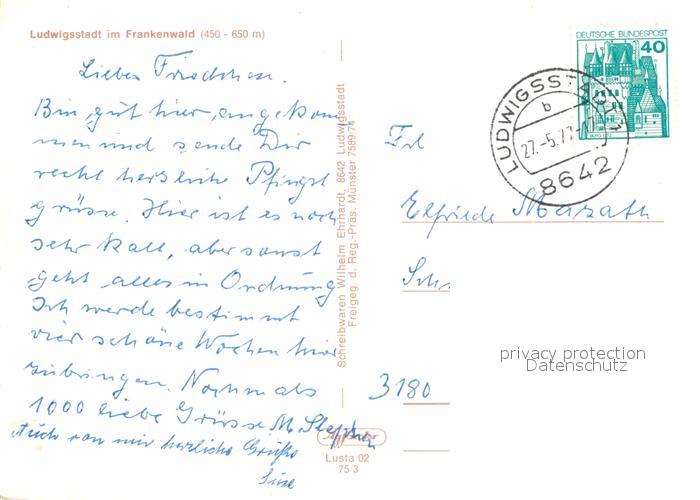 Ludwigsstadt im Frankenwald (450 - 650 m)
Bin gut hier angekom
men und sende Dir
recht herzliche Pfingst
grüsse. Hier ist es noch
sehr kalt, aber sonst
geht alles in Ordnung
Ich werde bestimmt
vier schöne Wochen hier
zubringen. Nochmals
1000 liebe Grüsse M.
Auch von mir herzliche Grüße
Schreibwaren Wilhelm Ehrhardt, 8642 Ludwigsstadt
Freigeg. d. Reg.-Präs. Münster 7589/74
Lusta 02
75/3
DEUTSCHE BUNDESPOST
40
LUDWIGSSTADT
b
27.-5.77
8642
Frl
Elfriede
3180
privacy protection
Datenschutz